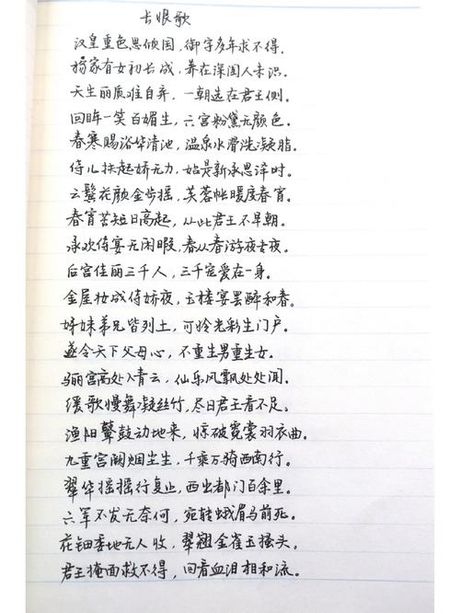 长恨歌
汉皇重色思倾国，御宇多年求不得。
杨家有女初长成，养在深闺人未识。
天生丽质难自弃，一朝选在君王侧。
回眸一笑百媚生，六宫粉黛无颜色。
春寒赐浴华清池，温泉水滑洗凝脂。
侍儿扶起娇无力，始是新承恩泽时。
云鬓花颜金步摇，芙蓉帐暖度春宵。
春宵苦短日高起，从此君王不早朝。
承欢侍宴无闲暇，春从春游夜专夜。
后宫佳丽三千人，三千宠爱在一身。
金屋妆成侍娇夜，玉楼宴罢醉和春。
姊妹弟兄皆列土，可怜光彩生门户。
遂令天下父母心，不重生男重生女。
骊宫高处入青云，仙乐风飘处处闻。
缓歌慢舞凝丝竹，尽日君王看不足。
渔阳鼙鼓动地来，惊破霓裳羽衣曲。
九重宫阙烟尘生，千乘万骑西南行。
翠华摇摇行复止，西出都门百余里。
六军不发无奈何，宛转蛾眉马前死。
花钿委地无人收，翠翘金雀玉搔头。
君王掩面救不得，回看血泪相和流。